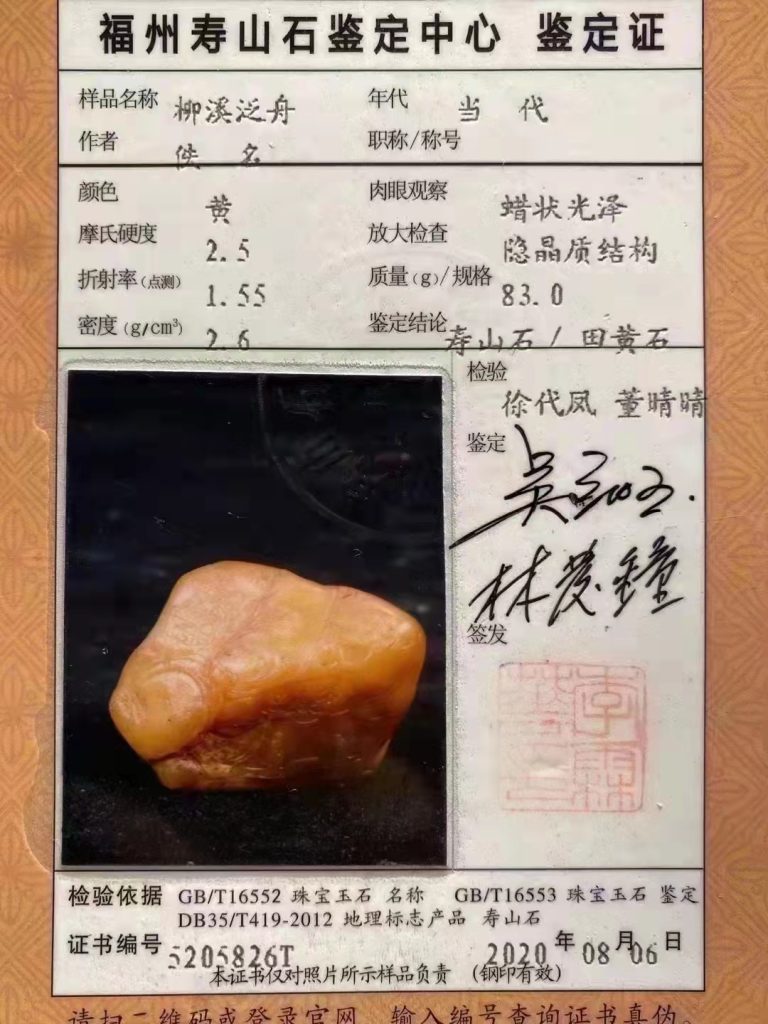 福州寿山石鉴定中心 鉴定证
样品名称 柳溪泛舟 年代 当 代
作者 佚 名 职称/称号
颜色 黄 肉眼观察 蜡状光泽
摩氏硬度 2.5 放大检查 隐晶质结构
折射率(点测) 1.55 质量(g)/规格 83.0
密度(g/cm³) 2.6 鉴定结论 寿山石 / 田黄石
检验 徐代凤 董晴晴
鉴定
林
签发
检验依据 GB/T16552 珠宝玉石 名称 GB/T16553 珠宝玉石 鉴定
DB35/T419-2012 地理标志产品 寿山石
证书编号 5205826T 2020 年 08 月 06 日
本证书仅对照片所示样品负责 (钢印有效)
请扫二维码或登录官网，输入编号查询证书真伪。